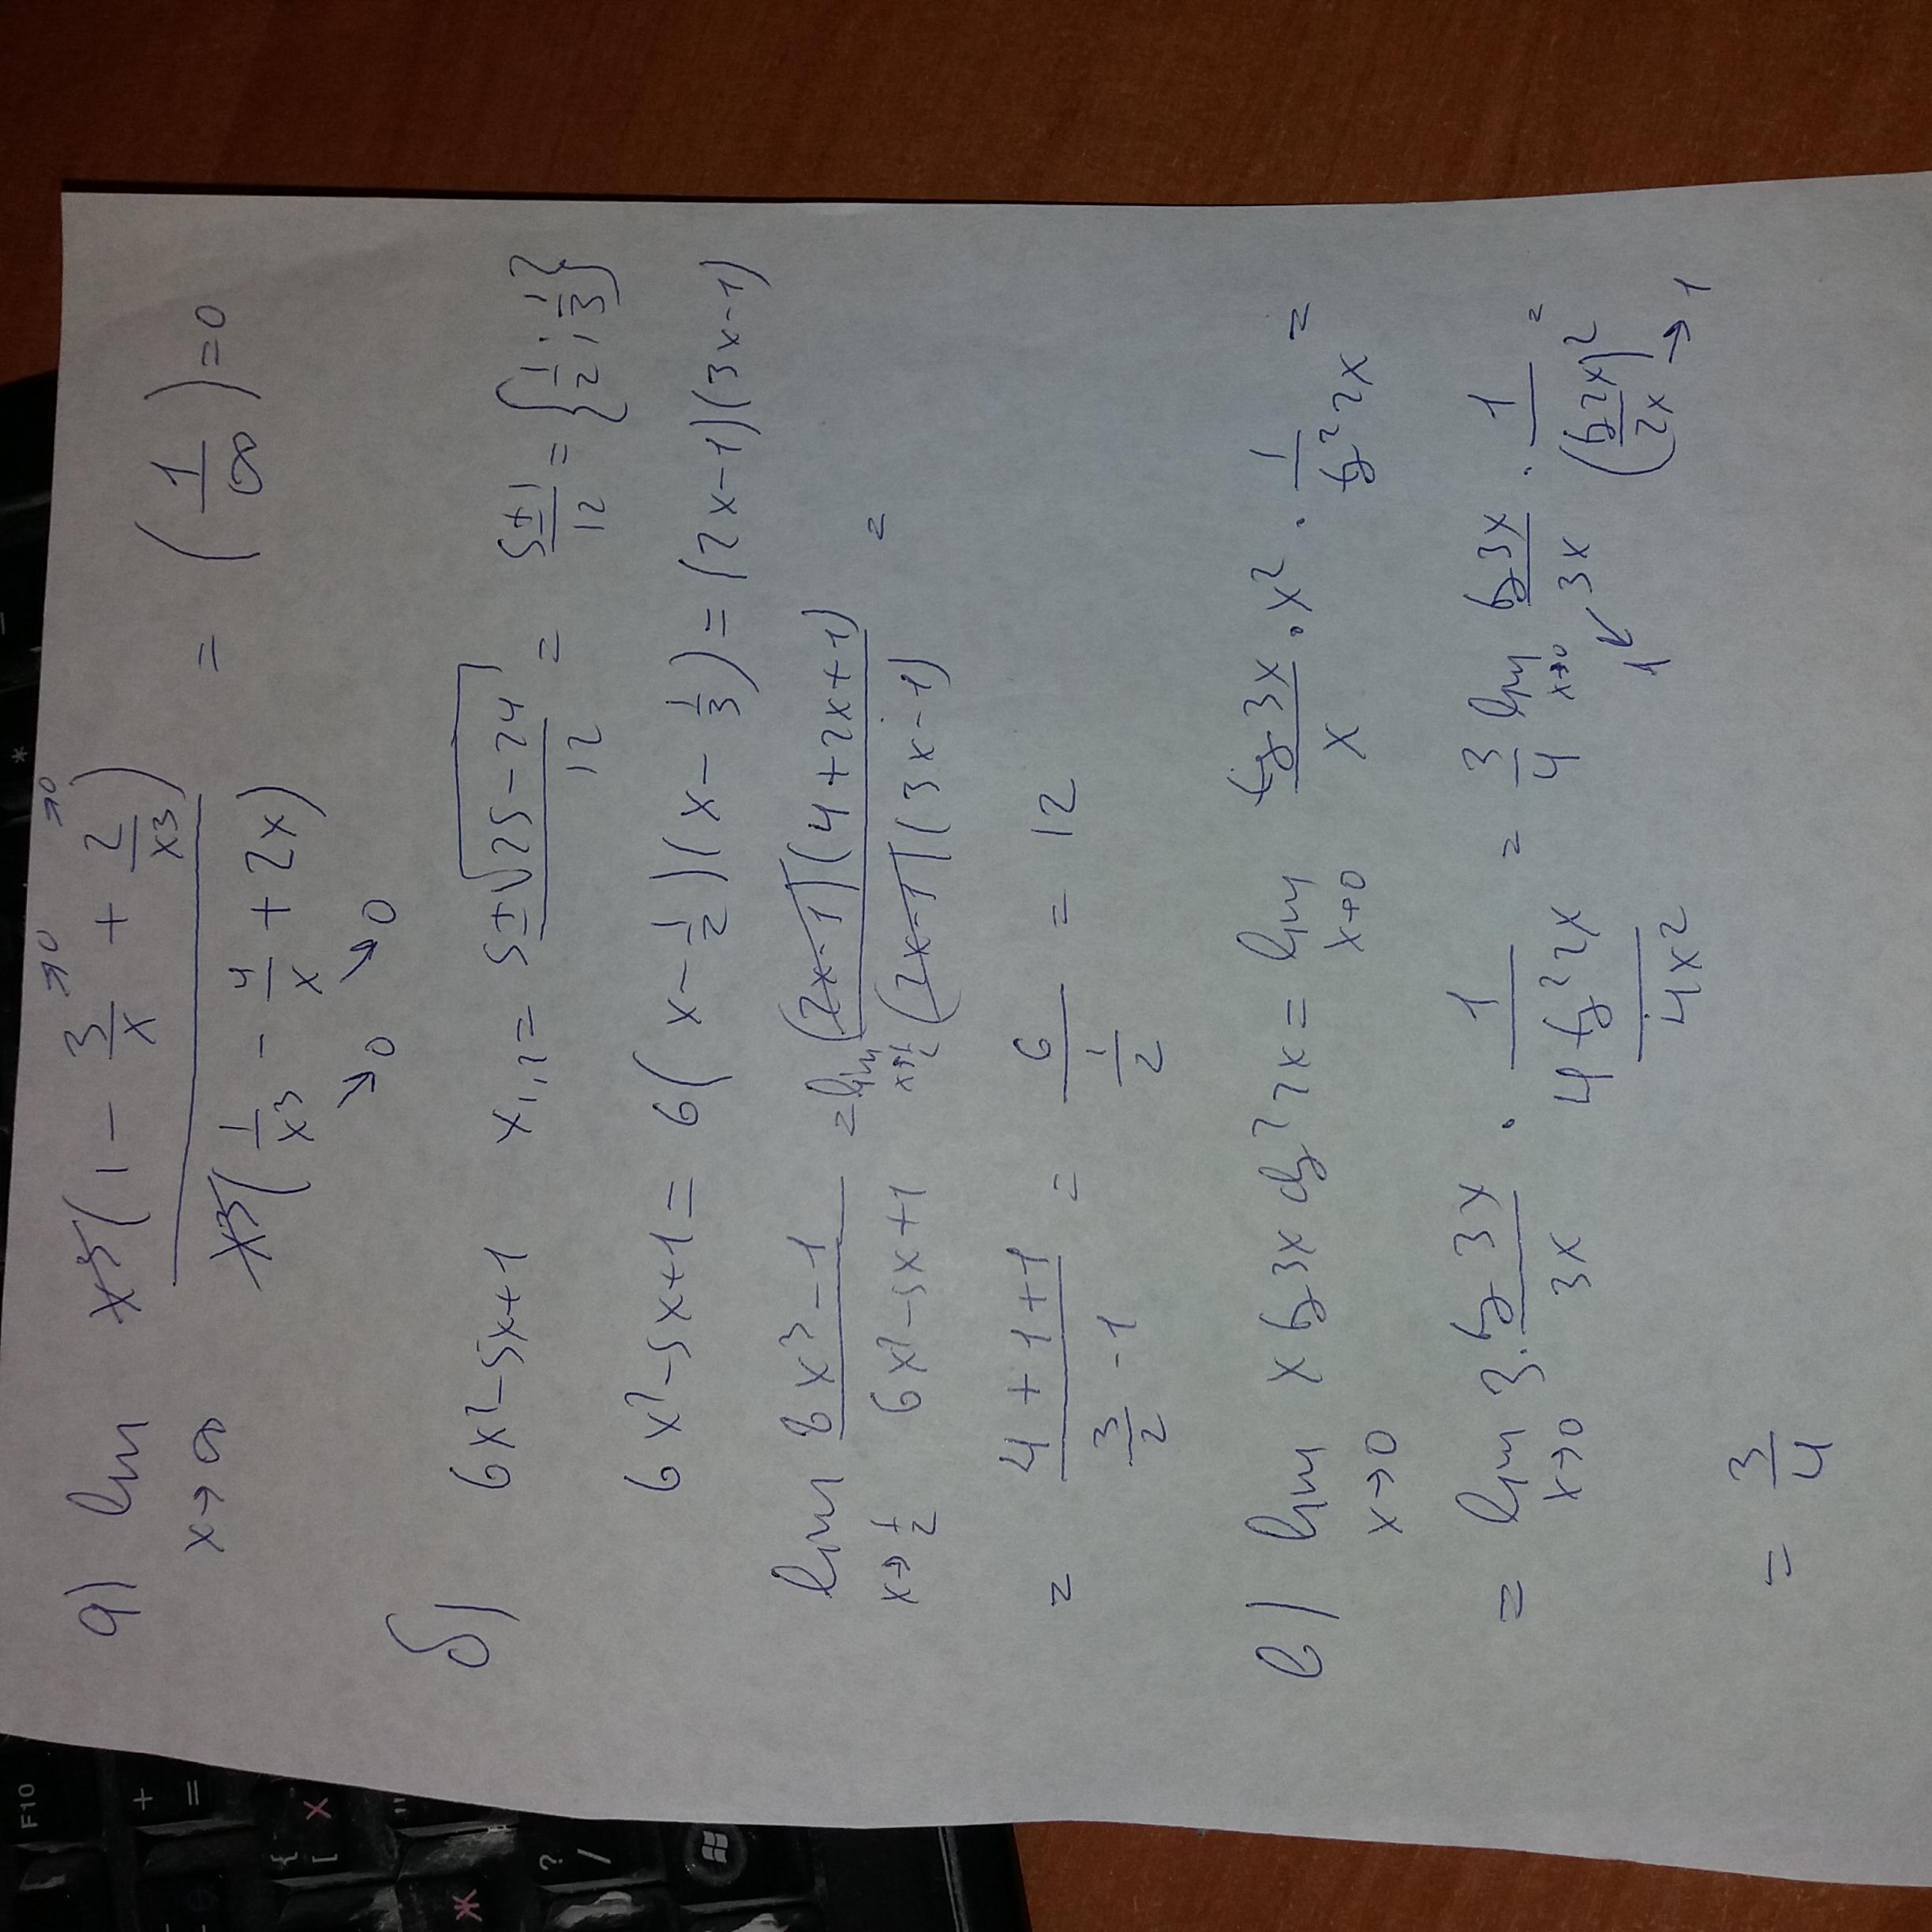 а) lim x³(1 - 3/x + 2/x³) / x³(1/x³ - 4/x + 2x) = (1/∞) = 0
x→∞
→0 →0
→0 →0
б) 6x²-5x+1 x₁,₂ = (5±√(25-24))/12 = (5±1)/12 = {1/2; 1/3}
6x²-5x+1 = 6(x-1/2)(x-1/3) = (2x-1)(3x-1)
lim x→1/2 (8x³-1)/(6x²-5x+1) = lim x→1/2 (2x-1)(4+2x+1)/(2x-1)(3x-1) =
= (4+1+1)/(3/2 -1) = 6/(1/2) = 12
в) lim x→0 x tg3x ctg²2x = lim x→0 tg3x/x · x² · 1/tg²2x =
= lim x→0 3·tg3x/3x · 1/(4tg²2x/4x²) = 3/4 lim x→0 tg3x/3x · 1/(tg2x/2x)² =
1 →1
= 3/4
F10
+
=
{
[
х
"
?
/
ж
*